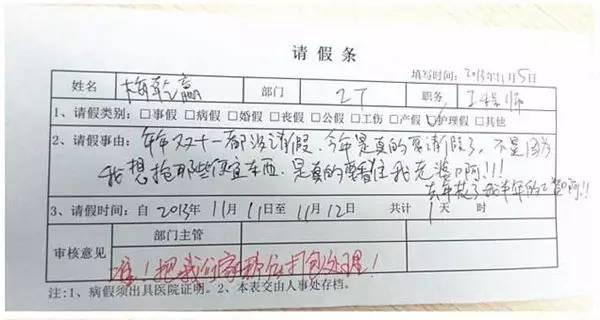 请假条
填写时间：2013年11月5日
姓名 梅乾赢 部门 IT 职务 工程师
1、请假类别：□事假 □病假 □婚假 □丧假 □公假 □工伤 □产假 □护理假 □其他
2、请假事由：年年双十一都没请假，今年是真的要请假了，不是因为
我想抢那些便宜东西，是真的要看住我老婆啊!!!
去年花了我半年的工资啊!!
3、请假时间：自 2013年 11月 11日至 11月 12日 共计 1天 时
审核意见 部门主管
准！把我们家那位打包处理！
注：1、病假须出具医院证明。2、本表交由人事处存档。